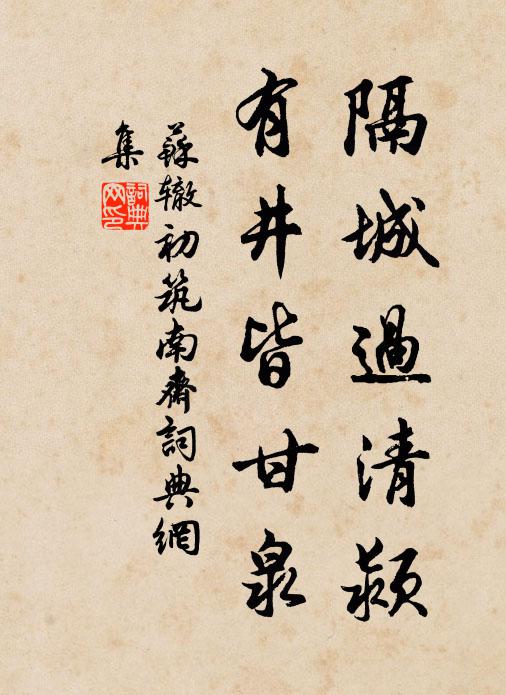 隔城過清潁
有井皆甘泉
蘇辙初筑南齋詞典網
集
詞典网印